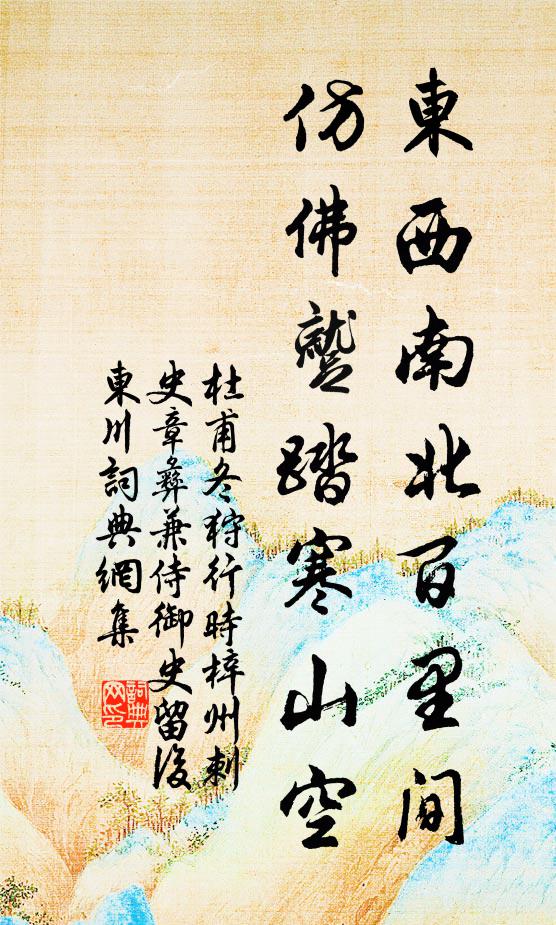 東西南北百里間
仿佛蹵踏寒山空
杜甫冬狩行時梓州刺
史章彝兼侍御史留後
東川詞典網集
詞典
网印